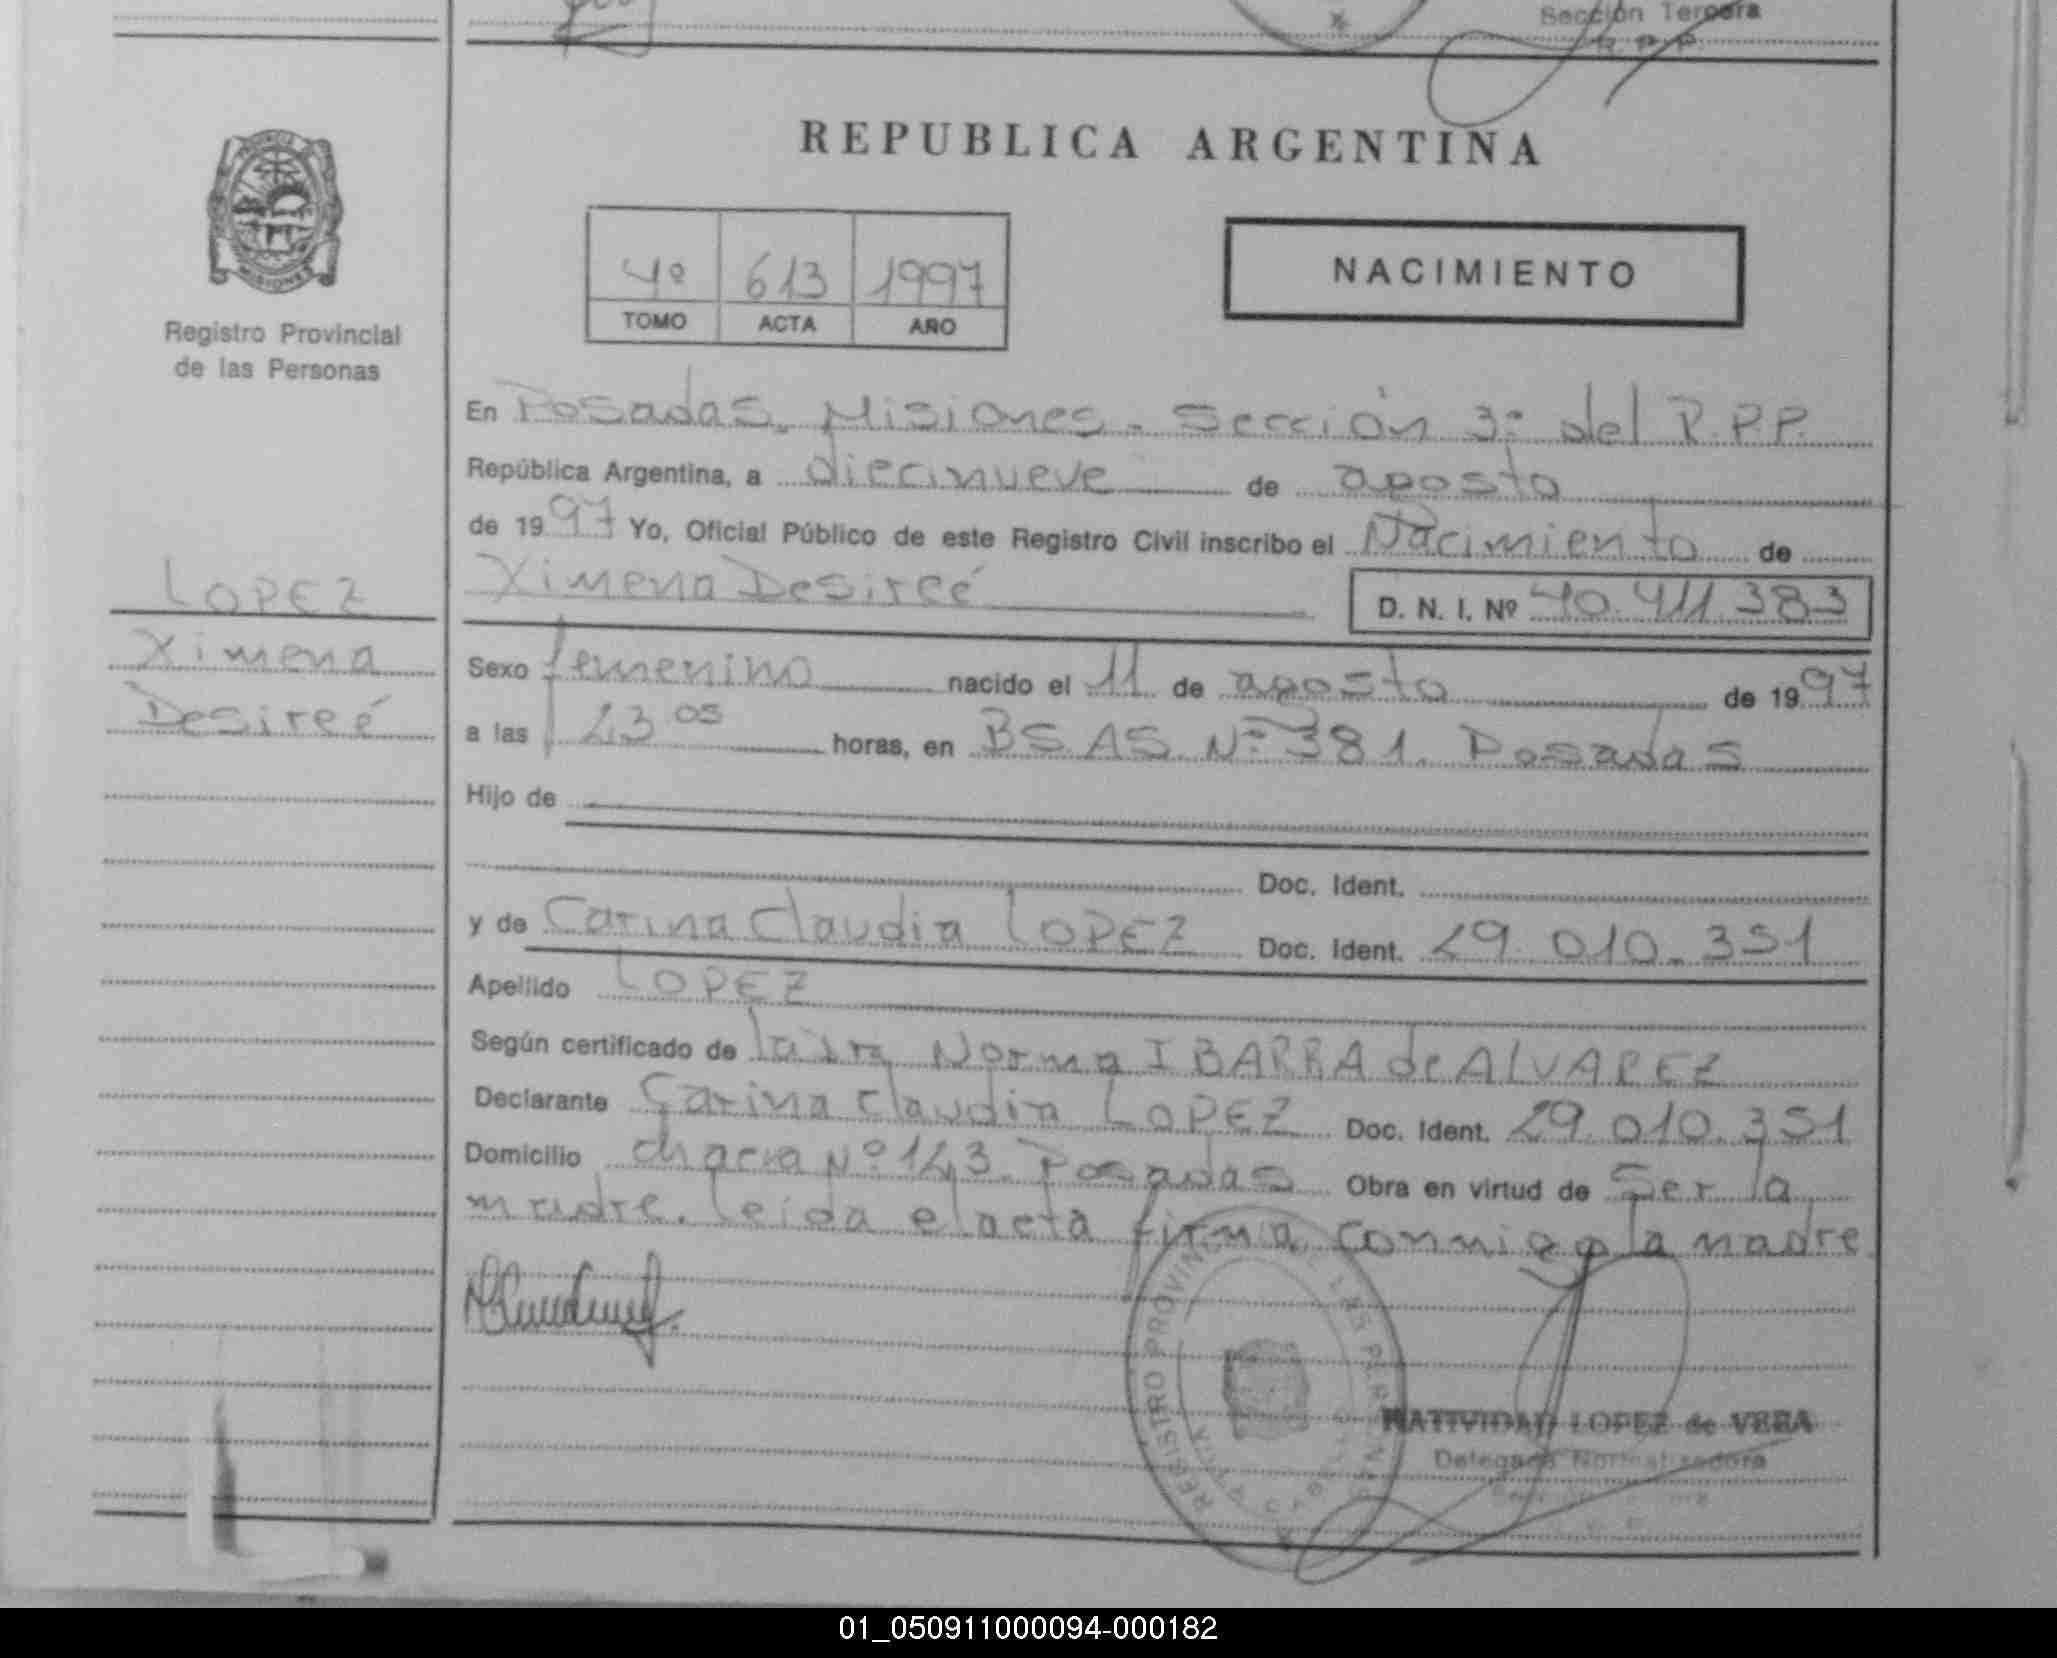 Sección Tercera
R. P. P.
REPUBLICA ARGENTINA
4º 613 1997
TOMO ACTA AÑO
NACIMIENTO
Registro Provincial
de las Personas
En Posadas. Misiones. Sección 3ª del R.P.P.
República Argentina, a diecinueve de agosto
de 1997 Yo, Oficial Público de este Registro Civil inscribo el Nacimiento de
Ximena Desireé D. N. I. Nº 40.411.383
LOPEZ
Ximena
Desireé
Sexo femenino nacido el 11 de agosto de 1997
a las 23 05 horas, en BS AS Nº 381. Posadas
Hijo de
Doc. Ident.
y de Carina Claudia LOPEZ Doc. Ident. 29.010.351
Apellido LOPEZ
Según certificado de la Norma IBARRA de ALVAREZ
Declarante Carina Claudia LOPEZ Doc. Ident. 29.010.351
Domicilio chacra Nº 143. Posadas Obra en virtud de Ser la
madre. leída el acta firma conmigo la madre
REGISTRO PROVINCIAL DE LAS PERSONAS
NATIVIDAD LOPEZ de VERA
Delegada Normalizadora
01_050911000094-000182